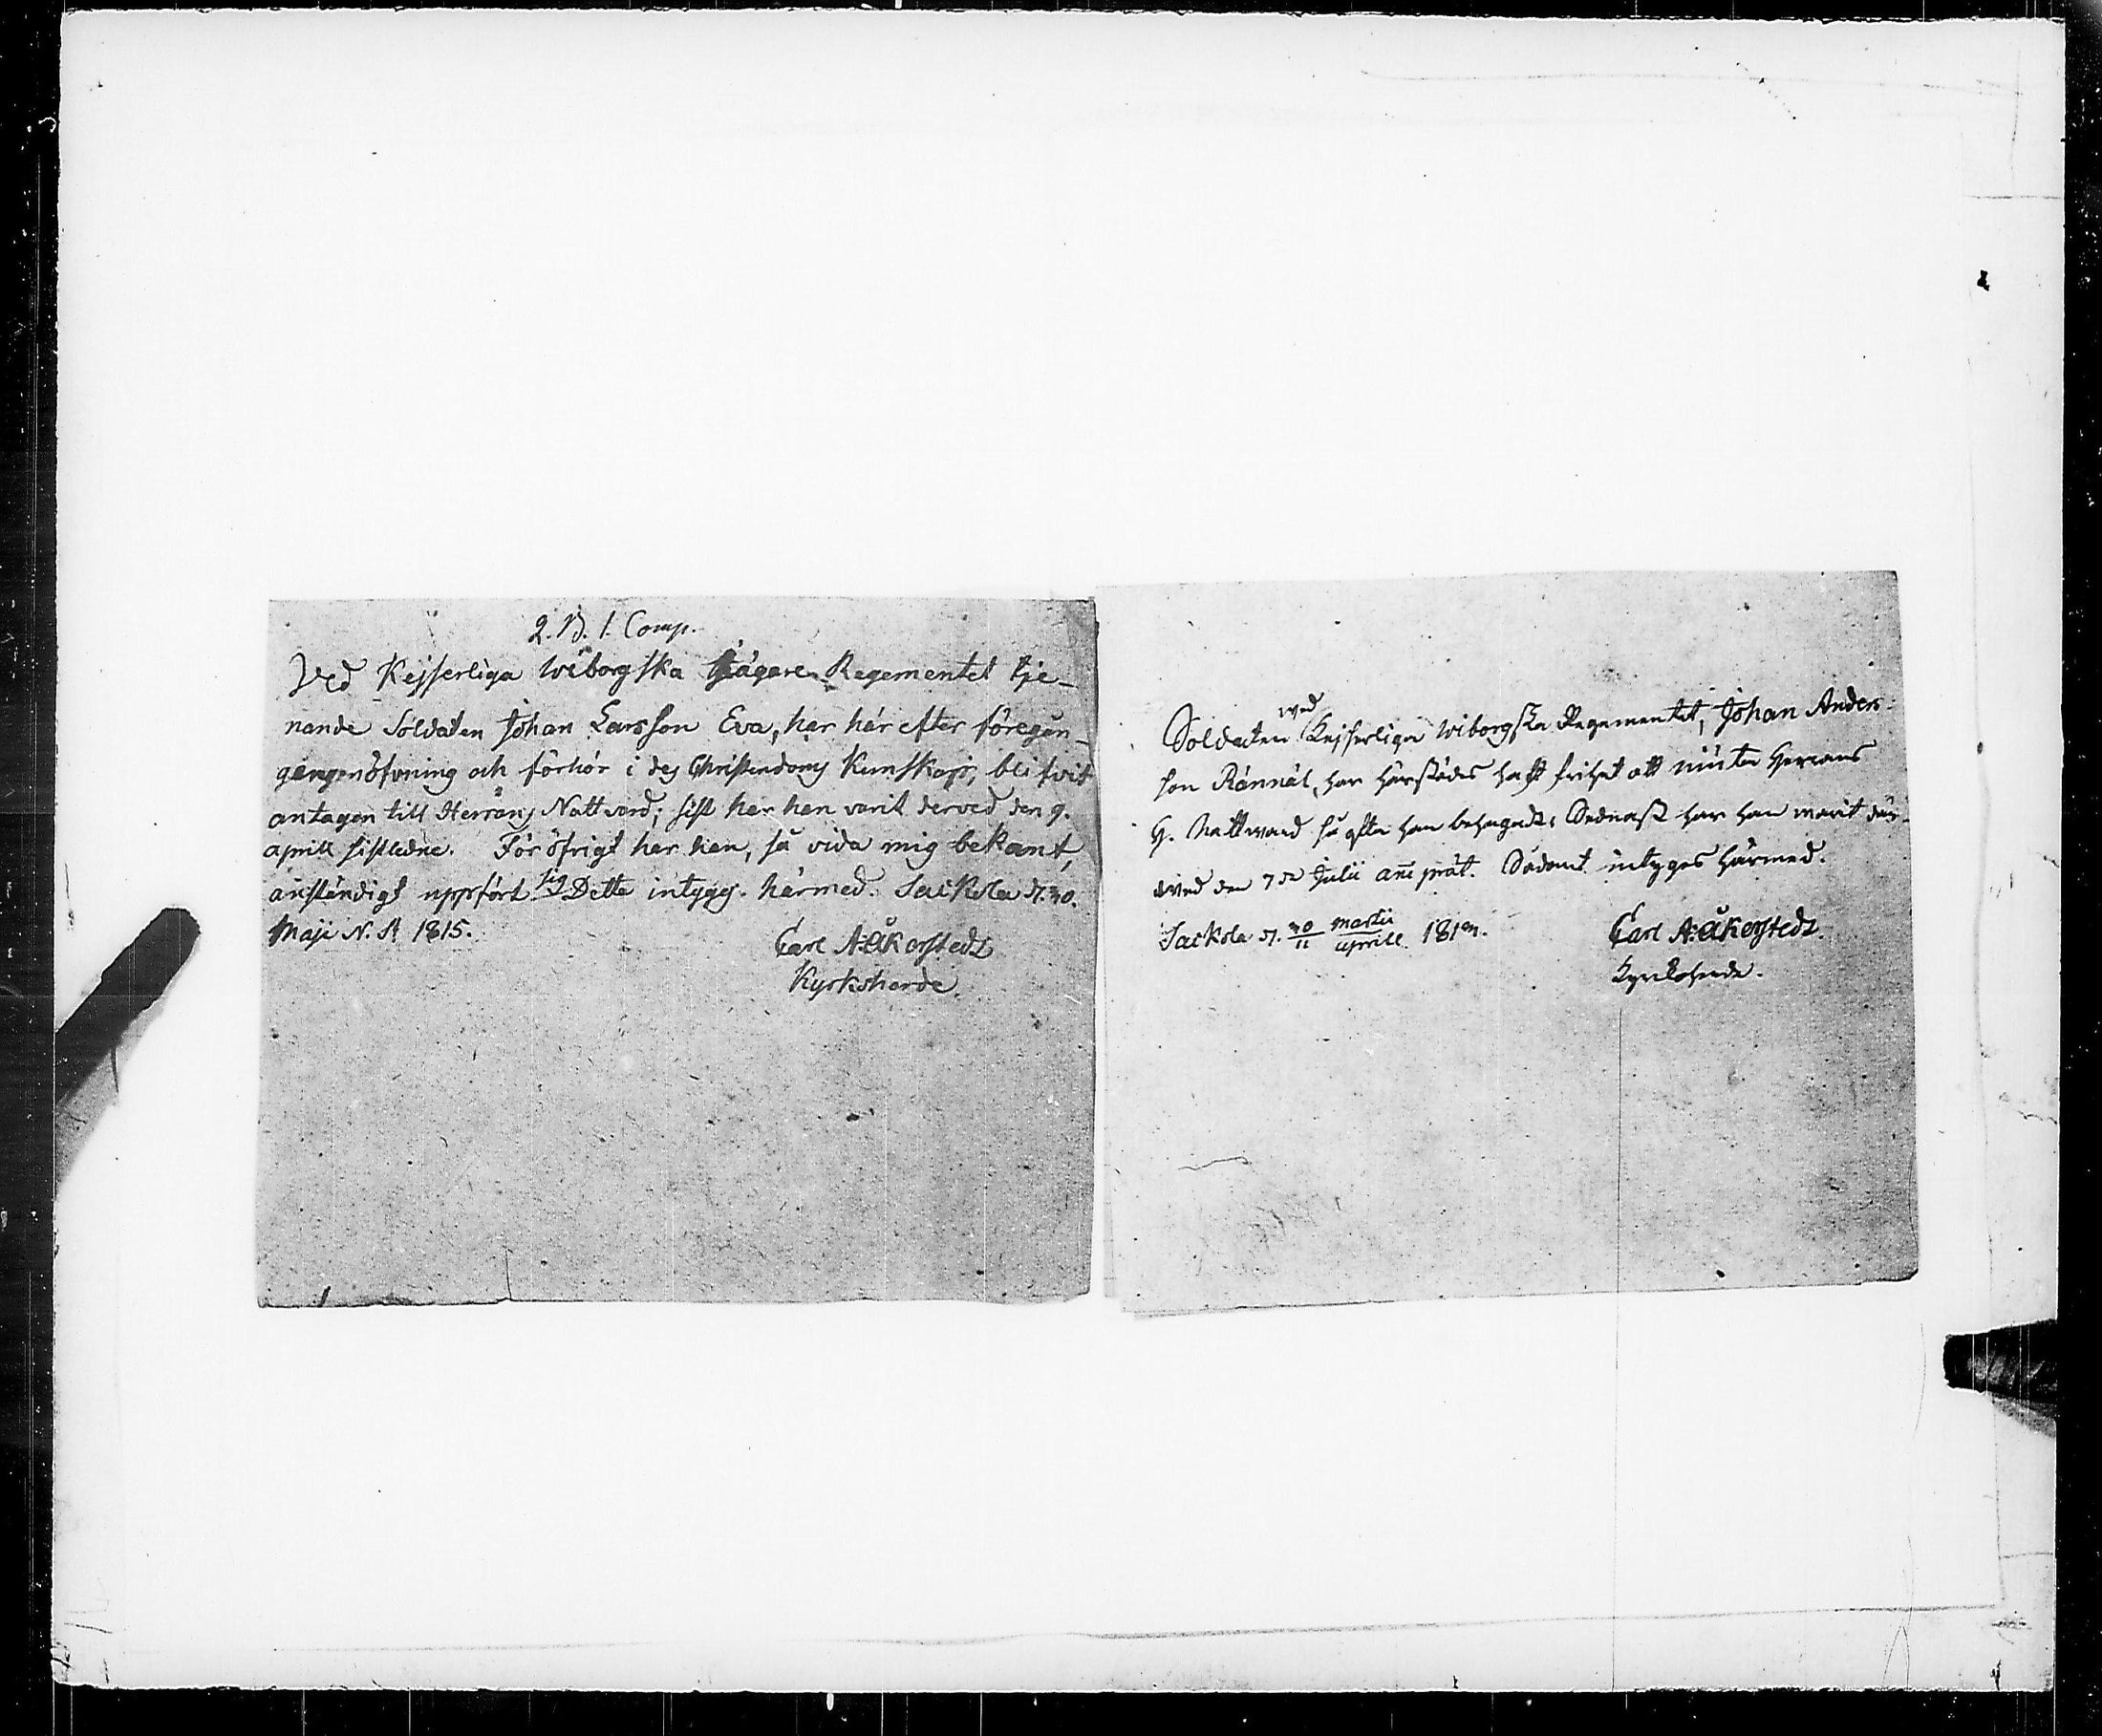 2. B. 1. Comp.
Ved Kejserliga Wiborgska Jägare Regementet tje-
nande Soldaten Johan Larsson Eva, har här efter föregån-
gången öfvning och förhör i des Christendoms Kunskap, blifvit
antagen till Herrans Nattvard; sist har han varit derved den 9.
aprill sistledne. För öfrigt har han, så vida mig bekant,
anständigt uppfört sig Dette intygg. härmed. Sackola d. 30.
Maji N. St 1815.
Carl A: Åkerstedt
Kyrkoherde
Soldaten wed Kejserliga Wiborgska Regementet, Johan Anders-
son Rännäl, har härstädes haft frihet att niuta Herrans
H. Nattward så ofta han behagadt; Sednast har han warit där-
wed den 7de Julii anni præt. Sådant intyges härmed.
Sackola d. 30/11 Martii/aprill 181
Carl A: Åkerstedt.
Kyrkoherde.